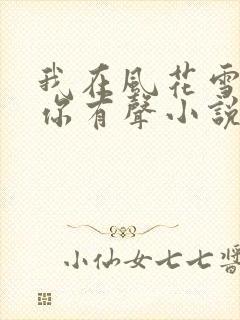 我在風花雪
你有聲小說
小仙女七七醬